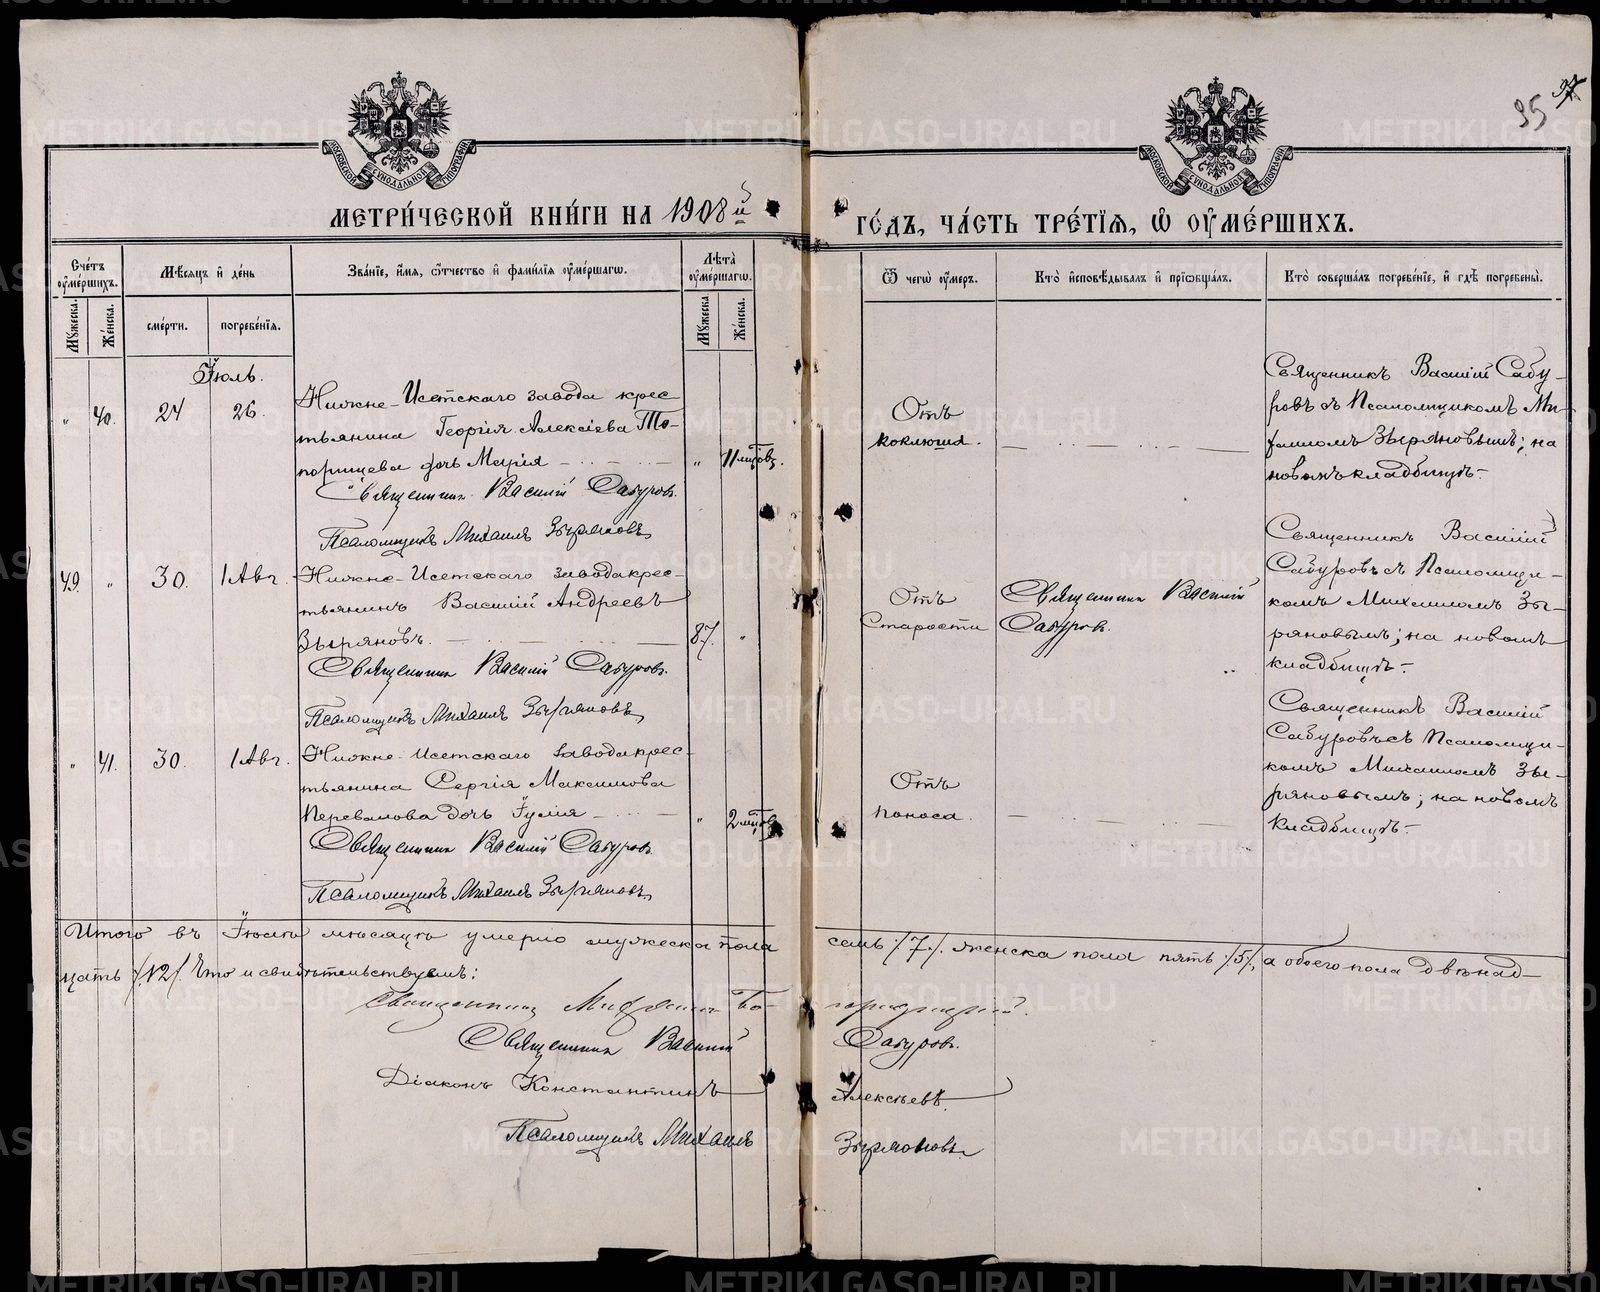 95
37
МОСКОВСКОЙ СѴНОДАЛЬНОЙ ТИПОГРАФІИ
МОСКОВСКОЙ СѴНОДАЛЬНОЙ ТИПОГРАФІИ
МЕТРИ́ЧЕСКОЙ КНИ́ГИ НА 1908й ГО́ДЪ, ЧА́СТЬ ТРЕ́ТІѦ, Ѡ҆ ОУ҆МЕ́РШИХЪ.
Сче́тъ оу҆ме́ршихъ.
Мꙋ́жеска.
Же́нска.
Мѣ́сѧцъ и҆ де́нь
сме́рти.
погребе́нїѧ.
Зва́нїе, и҆́мѧ, ѻ҆́тчество и҆ фамі́лїѧ оу҆ме́ршагѡ.
Лѣ́та оу҆ме́ршагѡ.
Мꙋ́жеска.
Же́нска.
Ѿ чегѡ̀ оу҆́меръ.
Кто̀ и҆сповѣ́дывалъ и҆ прїѡбща́лъ.
Кто̀ соверша́лъ погребе́нїе, и҆ гдѣ̀ погребены̀.
Іюль.
" 40. 24 26.
Нижне-Исетскаго завода крес-
тьянина Георгія Алексіева То-
порищева дочь Марія
" 11 мцовъ.
Священник Василій Сабуровъ.
Псаломщикъ Михаилъ Зыряновъ
Отъ
коклюша.
Священникъ Василій Сабу-
ровъ съ Псаломщикомъ Ми-
хаиломъ Зыряновымъ; на
новомъ кладбищѣ.
49. " 30. 1 Авг.
Нижне-Исетскаго завода крес-
тьянинъ Василій Андреевъ
Зыряновъ.
87. "
Священник Василій Сабуровъ.
Псаломщикъ Михаилъ Зыряновъ
Отъ
Старости
Священник Василій
Сабуровъ.
Священникъ Василій
Сабуровъ съ Псаломщи-
комъ Михаиломъ Зы-
ряновымъ; на новомъ
кладбищѣ.
" 41. 30. 1 Авг.
Нижне-Исетскаго завода крес-
тьянина Сергія Максимова
Перевалова дочь Іулія
" 2 мцовъ
Священник Василій Сабуровъ.
Псаломщикъ Михаилъ Зыряновъ
Отъ
поноса.
Священникъ Василій
Сабуровъ съ Псаломщи-
комъ Михаиломъ Зы-
ряновымъ; на новомъ
кладбищѣ.
Итого въ Іюлѣ мѣсяцѣ умерло мужеска пола семь /7./ женска пола пять /5/, а обоего пола двѣнад-
цать /12/. Что и свидѣтельствуемъ:
Священник
Священник Василій Сабуровъ.
Діаконъ Константинъ Алексѣевъ.
Псаломщикъ Михаилъ Зыряновъ
METRIKI.GASO-URAL.RU